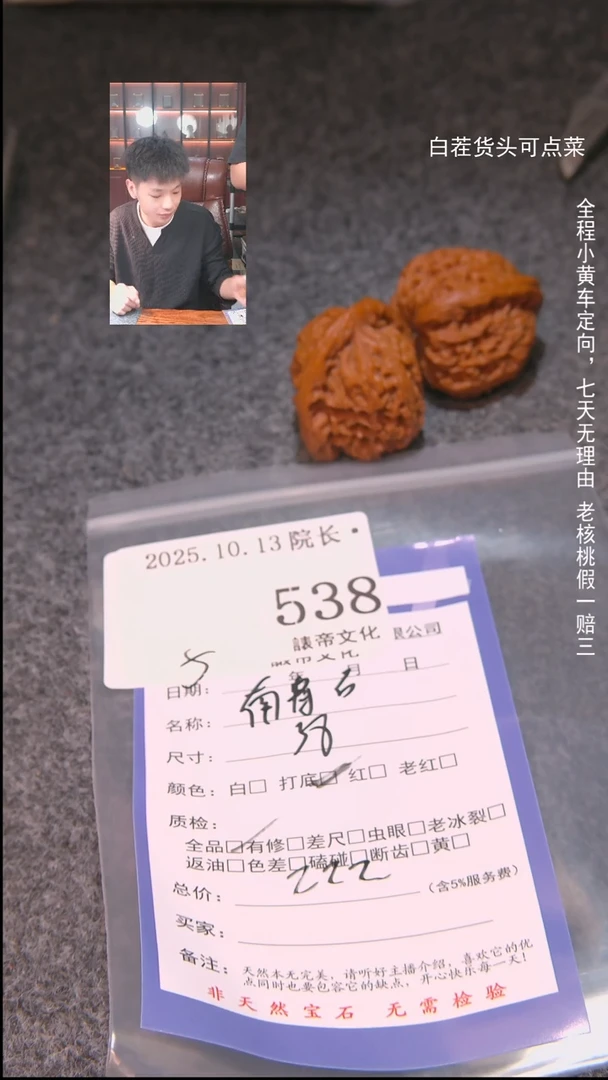 白茬货头可点菜
全程小黄车定向，七天无理由 老核桃假一赔三
2025.10.13院长
538
諘帝文化
限公司
日期： 年 月 日
名称：南将古
尺寸：38
颜色：白□ 打底□ 红□ 老红□
质检：
全品□有修□差尺□虫眼□老冰裂□
返油□色差□磕碰□断齿□黄□
总价： （含5%服务费）
买家：
备注：天然本无完美，请听好主播介绍，喜欢它的优
点同时也要包容它的缺点，开心快乐每一天！
非天然宝石 无需检验